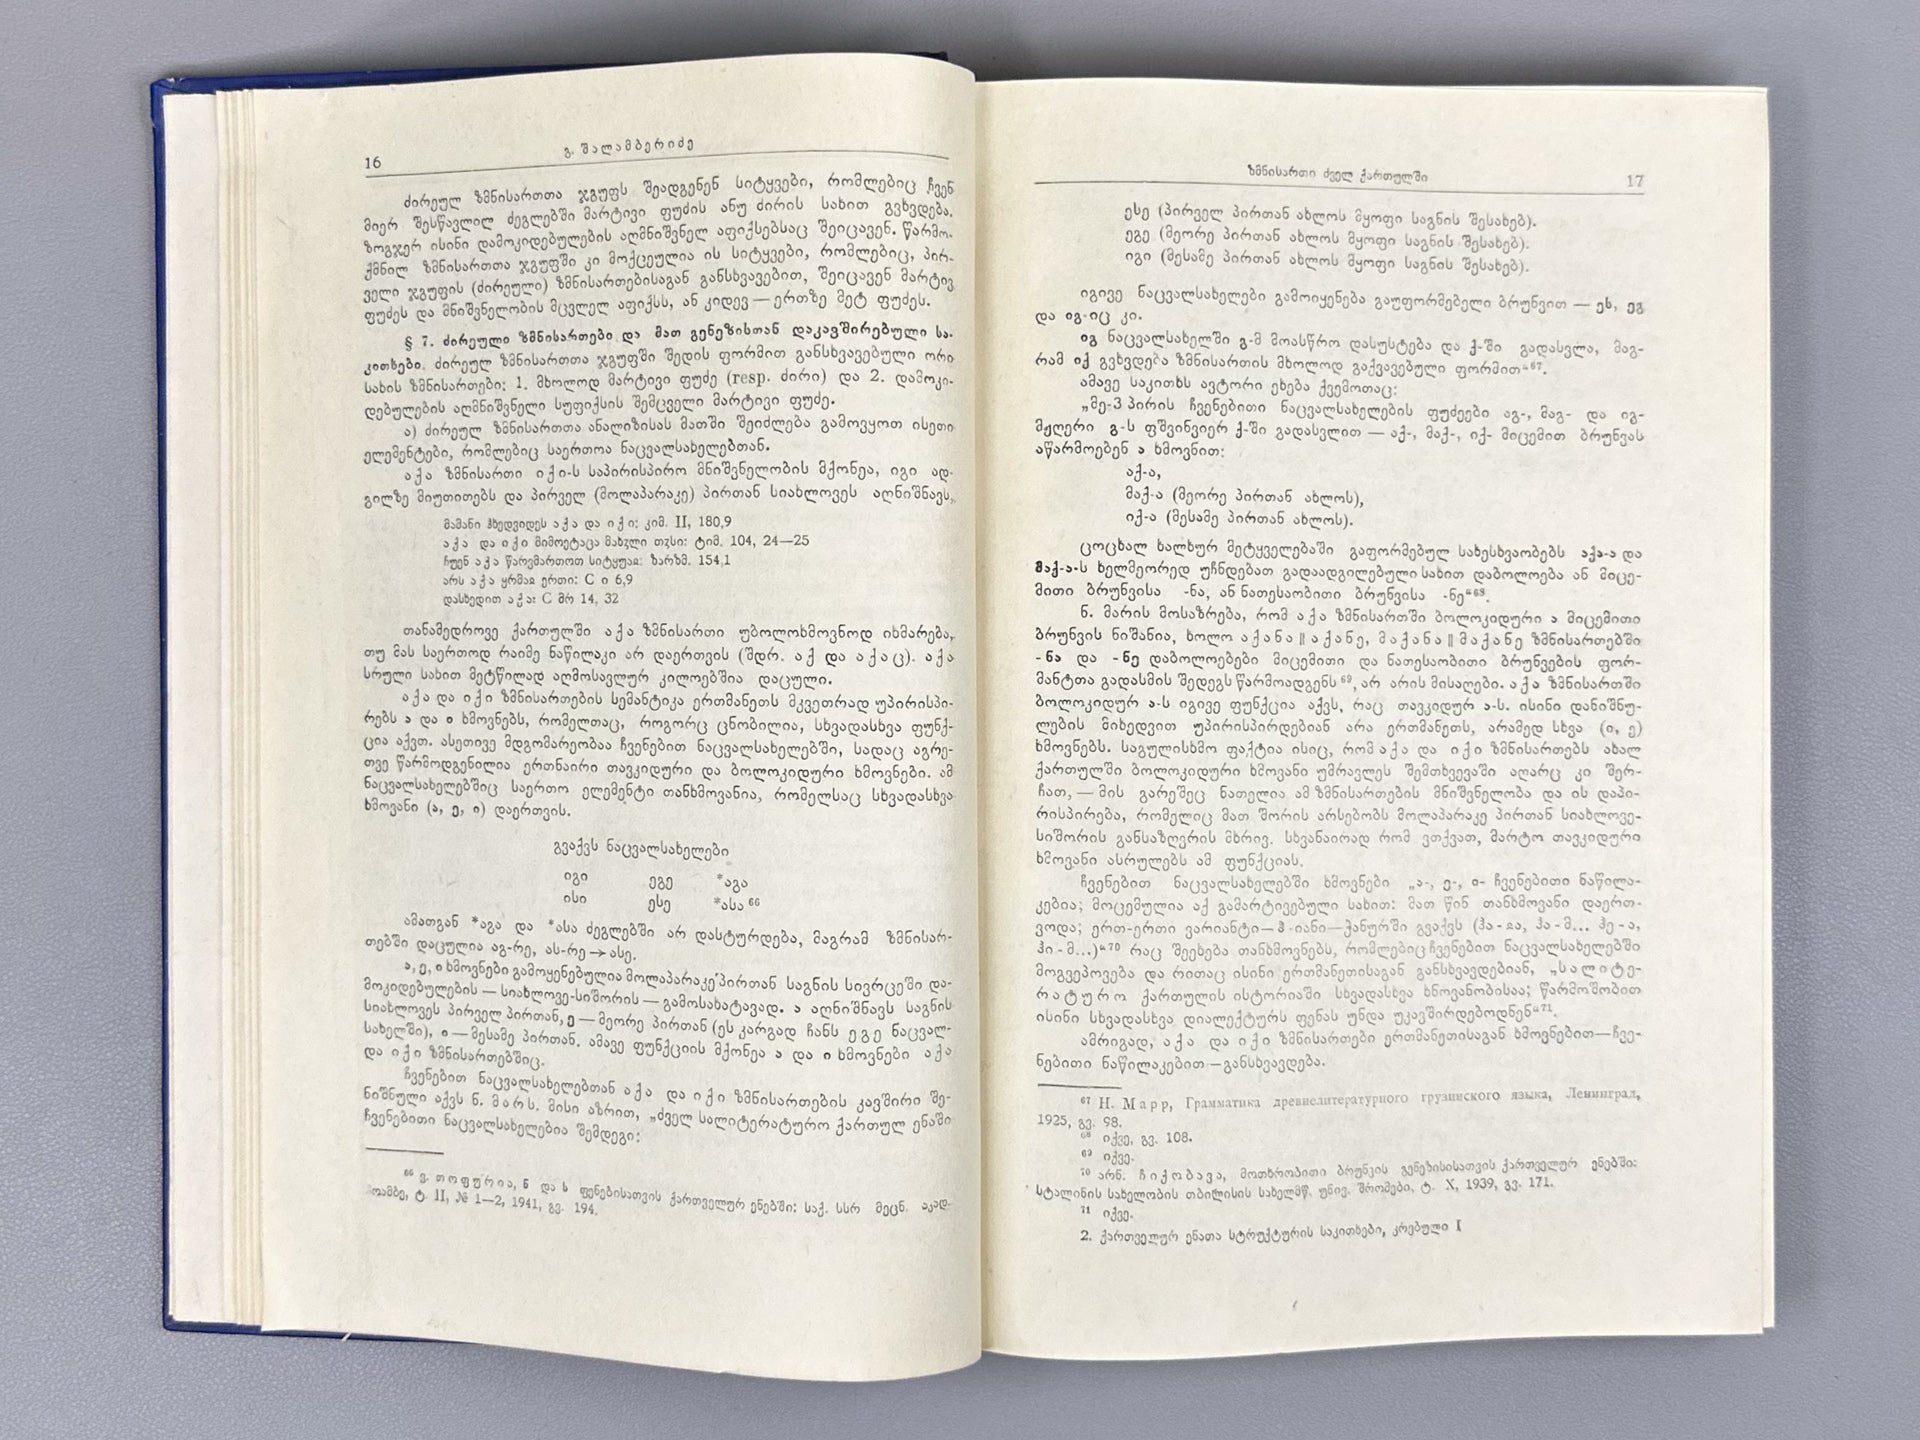 16
გ. შალამბერიძე
ძირეულ ზმნისართთა ჯგუფს შეადგენენ სიტყვები, რომლებიც ჩვენ
მიერ შესწავლილ ძეგლებში მარტივი ფუძის ანუ ძირის სახით გვხვდება.
ზოგჯერ ისინი დამოკიდებულების აღმნიშვნელ აფიქსებსაც შეიცავენ. წარმო-
ქმნილ ზმნისართთა ჯგუფში კი მოქცეულია ის სიტყვები, რომლებიც, პირ-
ველი ჯგუფის (ძირეული) ზმნისართებისაგან განსხვავებით, შეიცავენ მარტივ
ფუძეს და მნიშვნელობის მცვლელ აფიქსს, ან კიდევ — ერთზე მეტ ფუძეს.
§ 7. ძირეული ზმნისართები და მათ გენეზისთან დაკავშირებული სა-
კითხები. ძირეულ ზმნისართთა ჯგუფში შედის ფორმით განსხვავებული ორი
სახის ზმნისართები: 1. მხოლოდ მარტივი ფუძე (resp. ძირი) და 2. დამოკი-
დებულების აღმნიშვნელი სუფიქსის შემცველი მარტივი ფუძე.
ა) ძირეულ ზმნისართთა ანალიზისას მათში შეიძლება გამოვყოთ ისეთი
ელემენტები, რომლებიც საერთოა ნაცვალსახელებთან.
აქა ზმნისართი იქი-ს საპირისპირო მნიშვნელობის მქონეა, იგი ად-
გილზე მიუთითებს და პირველ (მოლაპარაკე) პირთან სიახლოვეს აღნიშნავს,
მამანი ჰხედვიდეს აქა და იქი: კიმ. II, 180,9
აქა და იქი მიმოეტაცა მახჳლი თჳსი: ტიმ. 104, 24—25
ჩუენ აქა წარვმართოთ სიტყუაჲ: ზარზმ. 154,1
არს აქა ყრმაჲ ერთი: C ი 6,9
დასხედით აქა: C მრ 14, 32
თანამედროვე ქართულში აქა ზმნისართი უბოლოხმოვნოდ იხმარება,
თუ მას საერთოდ რაიმე ნაწილაკი არ დაერთვის (შდრ. აქ და აქაც). აქა
სრული სახით მეტწილად აღმოსავლურ კილოებშია დაცული.
აქა და იქი ზმნისართების სემანტიკა ერთმანეთს მკვეთრად უპირისპი-
რებს ა და ი ხმოვნებს, რომელთაც, როგორც ცნობილია, სხვადასხვა ფუნქ-
ცია აქვთ. ასეთივე მდგომარეობაა ჩვენებით ნაცვალსახელებში, სადაც აგრე-
თვე წარმოდგენილია ერთნაირი თავკიდური და ბოლოკიდური ხმოვნები. ამ
ნაცვალსახელებშიც საერთო ელემენტი თანხმოვანია, რომელსაც სხვადასხვა
ხმოვანი (ა, ე, ი) დაერთვის.
გვაქვს ნაცვალსახელები
იგი ეგე *აგა
ისი ესე *ასა 66
ამათგან *აგა და *ასა ძეგლებში არ დასტურდება, მაგრამ ზმნისარ-
თებში დაცულია აგ-რე, ას-რე → ასე.
ა, ე, ი ხმოვნები გამოყენებულია მოლაპარაკე პირთან საგნის სივრცეში და-
მოკიდებულების — სიახლოვე-სიშორის — გამოსახატავად. ა აღნიშნავს საგნის
სიახლოვეს პირველ პირთან, ე — მეორე პირთან (ეს კარგად ჩანს ეგე ნაცვალ-
სახელში), ი — მესამე პირთან. ამავე ფუნქციის მქონეა ა და ი ხმოვნები აქა
და იქი ზმნისართებშიც.
ჩვენებით ნაცვალსახელებთან აქა და იქი ზმნისართების კავშირი შე-
ნიშნული აქვს ნ. მარს. მისი აზრით, „ძველ სალიტერატურო ქართულ ენაში
ჩვენებითი ნაცვალსახელებია შემდეგი:
66 ვ. თოფურია, ნ და ს ფენებისათვის ქართველურ ენებში: საქ. სსრ მეცნ. აკად.
მოამბე, ტ. II, № 1—2, 1941, გვ. 194.
ზმნისართი ძველ ქართულში
17
ესე (პირველ პირთან ახლოს მყოფი საგნის შესახებ).
ეგე (მეორე პირთან ახლოს მყოფი საგნის შესახებ).
იგი (მესამე პირთან ახლოს მყოფი საგნის შესახებ).
იგივე ნაცვალსახელები გამოიყენება გაუფორმებელი ბრუნვით — ეს, ეგ
და იგ-იც კი.
იგ ნაცვალსახელში გ-მ მოასწრო დასუსტება და ქ-ში გადასვლა, მაგ-
რამ იქ გვხვდება ზმნისართის მხოლოდ გაქვავებული ფორმით“67.
ამავე საკითხს ავტორი ეხება ქვემოთაც:
„მე-3 პირის ჩვენებითი ნაცვალსახელების ფუძეები აგ-, მაგ- და იგ-
მჟღერი გ-ს ფშვინვიერ ქ-ში გადასვლით — აქ-, მაქ-, იქ- მიცემით ბრუნვას
აწარმოებენ ა ხმოვნით:
აქ-ა,
მაქ-ა (მეორე პირთან ახლოს),
იქ-ა (მესამე პირთან ახლოს).
ცოცხალ ხალხურ მეტყველებაში გაფორმებულ სახესხვაობებს აქა-ა და
მაქ-ა-ს ხელმეორედ უჩნდებათ გადაადგილებული სახით დაბოლოება ან მიცე-
მითი ბრუნვისა -ნა, ან ნათესაობითი ბრუნვისა -ნე“68.
ნ. მარის მოსაზრება, რომ აქა ზმნისართში ბოლოკიდური ა მიცემითი
ბრუნვის ნიშანია, ხოლო აქანა ‖ აქანე, მაქანა ‖ მაქანე ზმნისართებში
-ნა და -ნე დაბოლოებები მიცემითი და ნათესაობითი ბრუნვების ფორ-
მანტთა გადასმის შედეგს წარმოადგენს 69, არ არის მისაღები. აქა ზმნისართში
ბოლოკიდურ ა-ს იგივე ფუნქცია აქვს, რაც თავკიდურ ა-ს. ისინი დანიშნუ-
ლების მიხედვით უპირისპირდებიან არა ერთმანეთს, არამედ სხვა (ი, ე)
ხმოვნებს. საგულისხმო ფაქტია ისიც, რომ აქა და იქი ზმნისართებს ახალ
ქართულში ბოლოკიდური ხმოვანი უმრავლეს შემთხვევაში აღარც კი შერ-
ჩათ, — მის გარეშეც ნათელია ამ ზმნისართების მნიშვნელობა და ის დაპი-
რისპირება, რომელიც მათ შორის არსებობს მოლაპარაკე პირთან სიახლოვე-
სიშორის განსაზღვრის მხრივ. სხვანაირად რომ ვთქვათ, მარტო თავკიდური
ხმოვანი ასრულებს ამ ფუნქციას.
ჩვენებით ნაცვალსახელებში ხმოვნები „ა-, ე-, ი- ჩვენებითი ნაწილა-
კებია; მოცემულია აქ გამარტივებული სახით: მათ წინ თანხმოვანი დაერთ-
ვოდა; ერთ-ერთი ვარიანტი—ჰ-იანი—ჭანურში გვაქვს (ჰა-ჲა, ჰა-მ... ჰე-ა,
ჰი-მ...)“70 რაც შეეხება თანხმოვნებს, რომლებიც ჩვენებით ნაცვალსახელებში
მოგვეპოვება და რითაც ისინი ერთმანეთისაგან განსხვავდებიან, „სალიტე-
რატურო ქართულის ისტორიაში სხვადასხვა ხნოვანობისაა; წარმოშობით
ისინი სხვადასხვა დიალექტურს ფენას უნდა უკავშირდებოდნენ“71.
ამრიგად, აქა და იქი ზმნისართები ერთმანეთისაგან ხმოვნებით—ჩვე-
ნებითი ნაწილაკებით—განსხვავდება.
67 Н. Марр, Грамматика древнелитературного грузинского языка, Ленинград,
1925, გვ. 98.
68 იქვე, გვ. 108.
69 იქვე.
70 არნ. ჩიქობავა, მოთხრობითი ბრუნვის გენეზისისათვის ქართველურ ენებში:
სტალინის სახელობის თბილისის სახელმწ. უნივ. შრომები, ტ. X, 1939, გვ. 171.
71 იქვე.
2. ქართველურ ენათა სტრუქტურის საკითხები, კრებული I